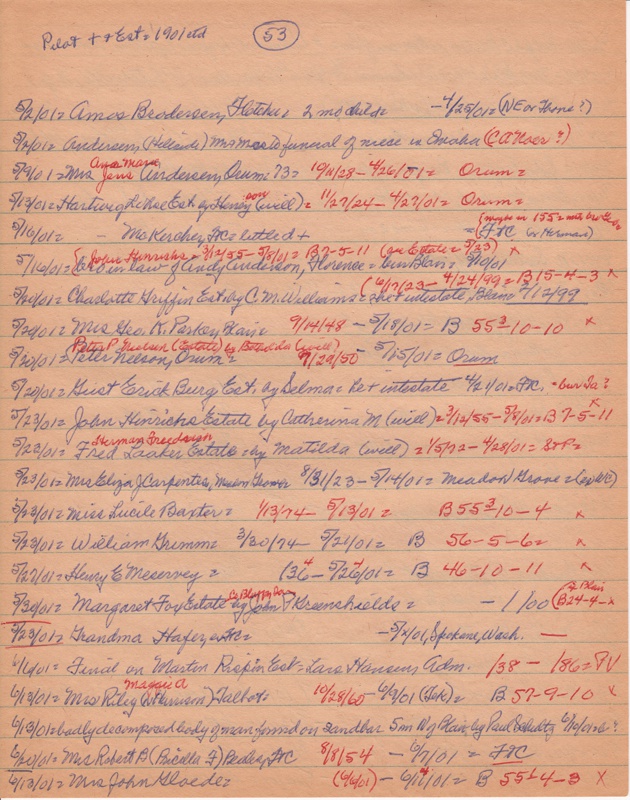 Pilot + + Est = 1901 ctd
53
5/2/01 = Amos Brodersen, Fletcher 2 mo child = - 4/25/01 = (NE or Thone?)
5/2/01 = Andersen, (Hillside) Mr + Mrs to funeral of niece in Omaha (CA Noer?)
Ana Marie
5/9/01 = Mrs Jens Andersen, Orum 73 = 10/11/28 - 4/26/01 = Orum =
5/9/01 = Hartwig Est by Henry son (will) = 11/27/24 - 4/27/01 = Orum =
5/16/01 = - McKercher, FtC = lettled + = FtC (or Herman)
(John Hinrichs = 3/12/55 - 5/8/01 = B 7-5-11 (see Estate = 5/23) x
5/16/01 = Bro in law of Andy Anderson, Florence = bur Blair =
(6/17/23 - 4/24/99 = B 15-4-3 x
5/20/01 = Charlotte Griffin Est by C. M. Williams = Pet intestate, Blair 4/12/99
5/20/01 = Mrs Geo. K. Parker, Blair = 9/14/48 - 5/18/01 = B 55³-10-10 x
Peter P. Nielsen (Estate) by Botholda (will)
5/20/01 = Peter Nelson, Orum = 7/29/50 5/15/01 = Orum
5/20/01 = Gust Erick Burg Est. by Selma = Pet intestate 4/21/01 = FtC. = bur Ia?
5/23/01 = John Hinrichs Estate by Catherina M (will) = 3/12/55 - 5/8/01 = B 7-5-11 x
Herman Fredrich
5/23/01 = Fred Laaker Estate = by Matilda (will) = 1/5/72 - 4/28/01 = StP =
5/23/01 = Mrs Eliza J Carpenter, Meadow Grove 8/31/23 - 5/14/01 = Meadow Grove = (ex WC)
5/23/01 = Miss Lucile Baxter = 1/13/74 - 5/13/01 = B 55³-10-4 x
5/23/01 = William Gremm = 3/30/74 - 5/21/01 = B 56-5-6 = x
5/27/01 = Henry E Meservey = 136 - 5/26/01 = B 46-10-11 x
5/30/01 = Margaret Foy Estate by John P Greenshields = - 1/00 (B 24-4- x
5/23/01 = Grandma Hafer = - 5/x/01, Spokane, Wash. —
6/6/01 = Final on Martin Rispin Est = Lars Hansen, Adm. 138 - 186 = PV
Maggie A
6/13/01 = Mrs Riley (W Harrison) Talbot = 10/28/60 - 6/9/01 (Tek) = B 57-9-10 x
6/13/01 = badly decomposed body of man found on sandbar 5 mi N of Blair, by Paul Schultz 6/10/01 = ?
6/20/01 = Mrs Robert B (Pricella F) Beales, FtC 8/8/54 - 6/7/01 = FtC
6/13/01 = Mrs John Gloede = (6/6/01) - 6/11/01 = B 55⁴-4-3 x